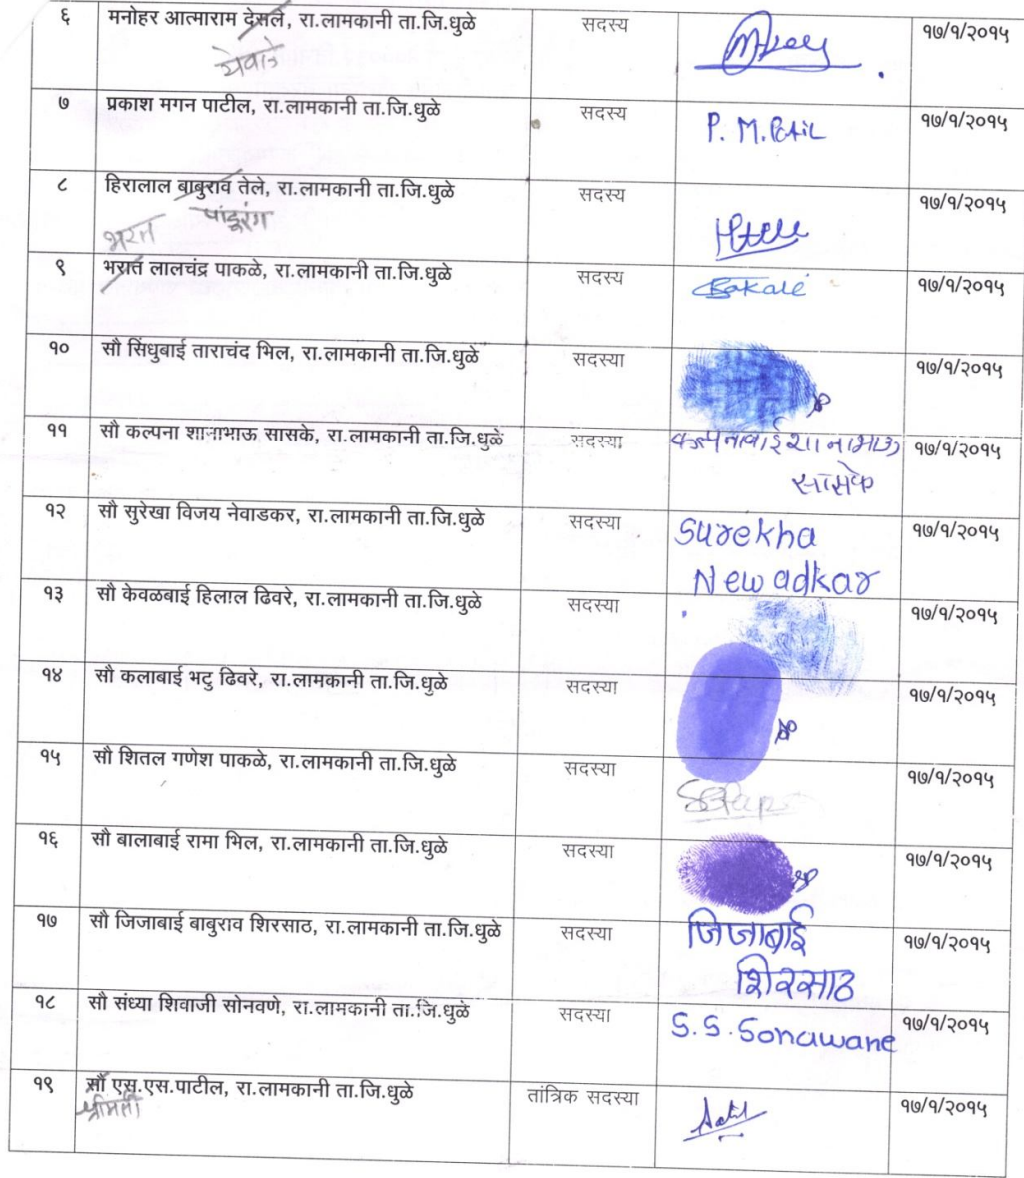 ६ मनोहर आत्माराम देसले, रा.लामकानी ता.जि.धुळे सदस्य १७/१/२०१५
येवले
७ प्रकाश मगन पाटील, रा.लामकानी ता.जि.धुळे सदस्य P. M. Patil १७/१/२०१५
८ हिरालाल बाबुराव तेले, रा.लामकानी ता.जि.धुळे सदस्य Htele १७/१/२०१५
पांडूरंग
भरत
९ भरात लालचंद्र पाकळे, रा.लामकानी ता.जि.धुळे सदस्य १७/१/२०१५
१० सौ सिंधुबाई ताराचंद भिल, रा.लामकानी ता.जि.धुळे सदस्या १७/१/२०१५
११ सौ कल्पना शानाभाऊ सासके, रा.लामकानी ता.जि.धुळे सदस्या कल्पनाबाई शानाभाऊ १७/१/२०१५
सासके
१२ सौ सुरेखा विजय नेवाडकर, रा.लामकानी ता.जि.धुळे सदस्या Surekha १७/१/२०१५
Newadkar
१३ सौ केवळबाई हिलाल ढिवरे, रा.लामकानी ता.जि.धुळे सदस्या १७/१/२०१५
१४ सौ कलाबाई भटु ढिवरे, रा.लामकानी ता.जि.धुळे सदस्या १७/१/२०१५
१५ सौ शितल गणेश पाकळे, रा.लामकानी ता.जि.धुळे सदस्या १७/१/२०१५
१६ सौ बालाबाई रामा भिल, रा.लामकानी ता.जि.धुळे सदस्या १७/१/२०१५
१७ सौ जिजाबाई बाबुराव शिरसाठ, रा.लामकानी ता.जि.धुळे सदस्या जिजाबाई १७/१/२०१५
शिरसाठ
१८ सौ संध्या शिवाजी सोनवणे, रा.लामकानी ता.जि.धुळे सदस्या S. S. Sonawane १७/१/२०१५
१९ सौ एस.एस.पाटील, रा.लामकानी ता.जि.धुळे तांत्रिक सदस्या १७/१/२०१५
श्रीमती